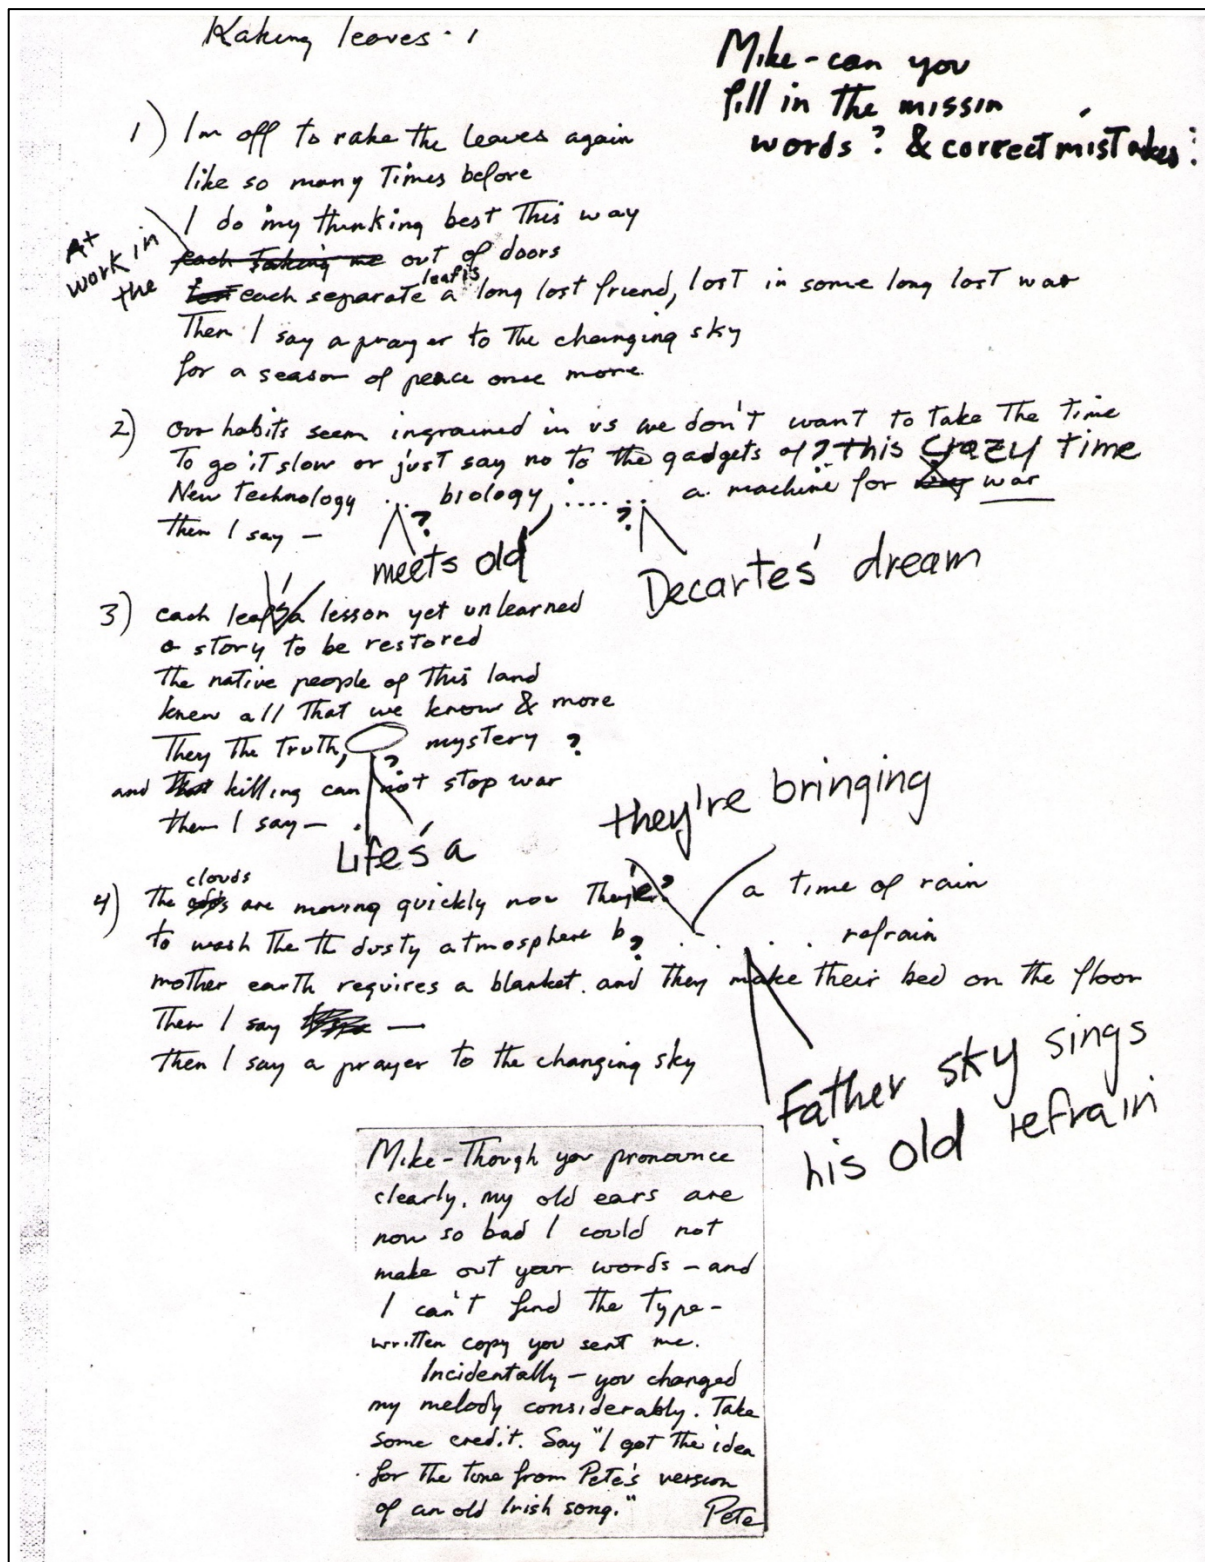 Raking leaves
Mike - can you
fill in the missin
words? & correct mistakes!
1) Im off to rake the leaves again
like so many times before
I do my thinking best this way
At work in the
each taking me out of doors
each separate leaf is a long lost friend, lost in some long lost war
Then I say a prayer to the changing sky
for a season of peace once more.
2) Our habits seem ingrained in us we don't want to take the time
To go it slow or just say no to the gadgets of ? this crazy time
New technology ... biology ...... a machine for war
? ?
then I say —
meets old
Decartes' dream
3) each leaf's a lesson yet unlearned
a story to be restored
the native people of this land
knew all that we know & more
They the truth, mystery ?
?
and that killing can not stop war
then I say —
Life's a
they're bringing
4) the clouds are moving quickly now They're? a time of rain
to wash the th dusty atmosphere b? . . . . refrain
mother earth requires a blanket. and they make their bed on the floor
Then I say —
then I say a prayer to the changing sky
Father sky sings
his old refrain
Mike - Though you pronounce
clearly, my old ears are
now so bad I could not
make out your words - and
I can't find the type-
written copy you sent me.
Incidentally - you changed
my melody considerably. Take
some credit. Say "I got the idea
for the tune from Pete's version
of an old Irish song."
Pete